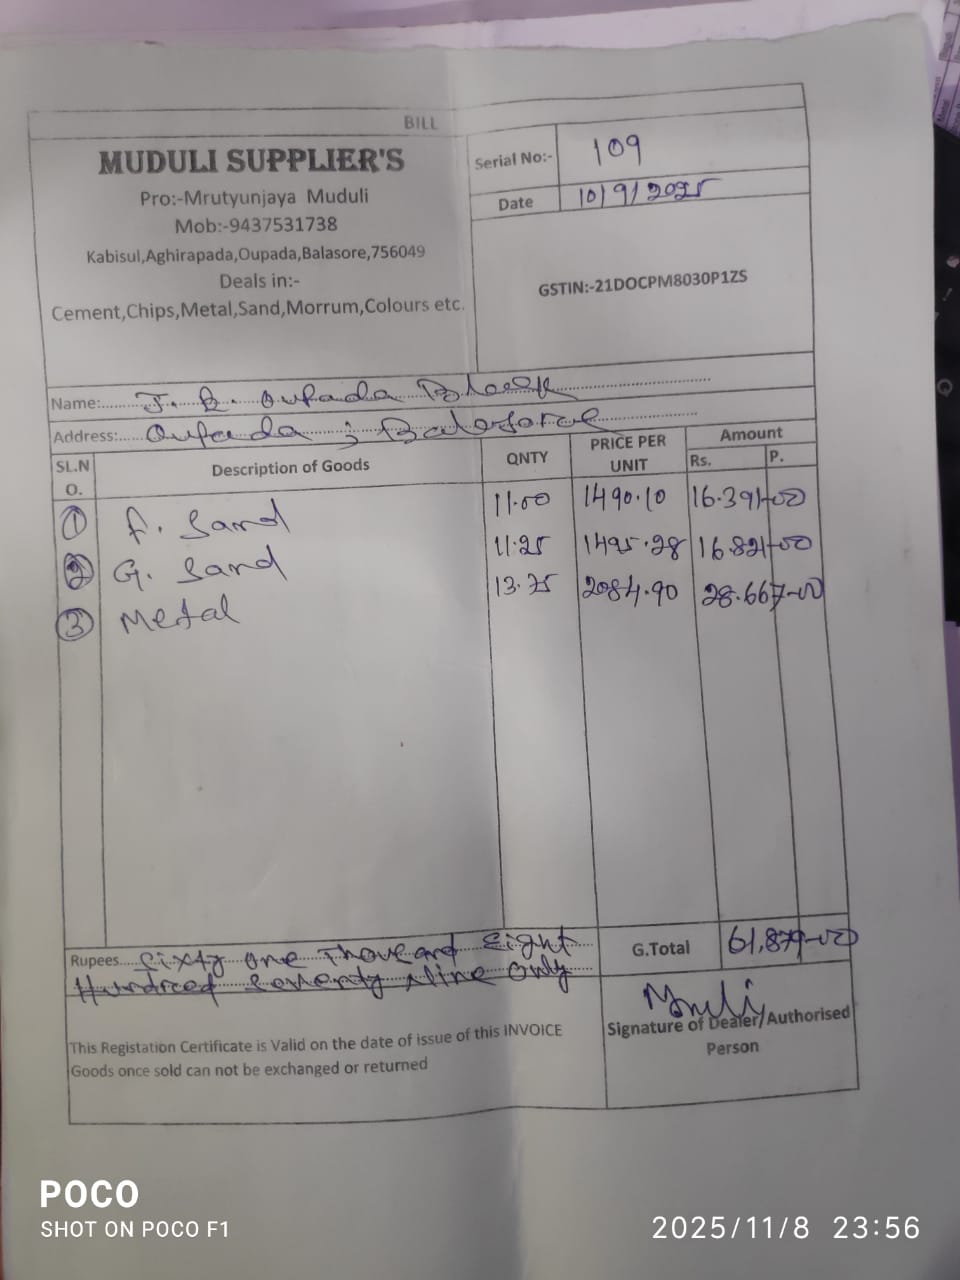 BILL
MUDULI SUPPLIER'S
Pro:-Mrutyunjaya Muduli
Mob:-9437531738
Kabisul,Aghirapada,Oupada,Balasore,756049
Deals in:-
Cement,Chips,Metal,Sand,Morrum,Colours etc.
Serial No:- 109
Date 10/9/2025
GSTIN:-21DOCPM8030P1ZS
Name:...... Oupada Block
Address:..... Oupada ; Balasore
SL.NO. Description of Goods QNTY PRICE PER UNIT Amount Rs. P.
1 F. Sand 11.00 1490.10 16.391-00
2 G. Sand 11.25 1495.28 16.821-00
3 Metal 13.75 2084.90 28.667-00
Rupees.... Sixty One Thousand Eight
Hundred Seventy Nine Only
G.Total 61,879-00
Muduli
Signature of Dealer/Authorised
Person
This Registation Certificate is Valid on the date of issue of this INVOICE
Goods once sold can not be exchanged or returned
POCO
SHOT ON POCO F1
2025/11/8 23:56